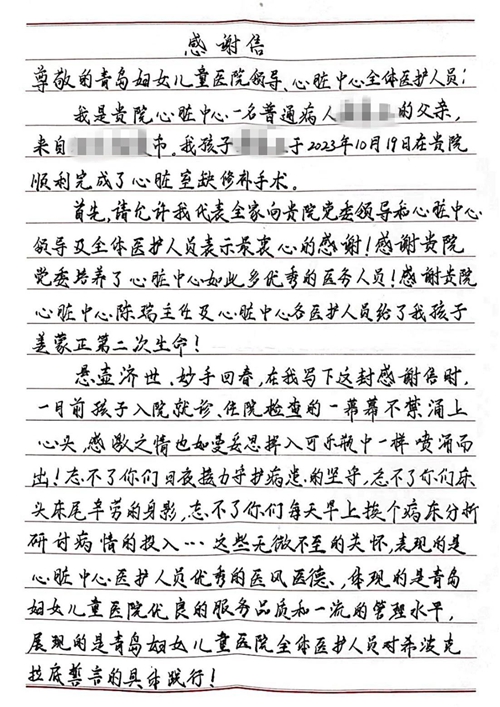 感谢信
尊敬的青岛妇女儿童医院领导、心脏中心全体医护人员：
我是贵院心脏中心一名普通病人的父亲，
来自市。我孩子于2023年10月19日在贵院
顺利完成了心脏室缺修补手术。
首先，请允许我代表全家向贵院党委领导和心脏中心
领导及全体医护人员表示最衷心的感谢！感谢贵院
党委培养了心脏中心如此多优秀的医务人员！感谢贵院
心脏中心陈瑞主任及心脏中心各医护人员给了我孩子
姜蒙正第二次生命！
悬壶济世、妙手回春，在我写下这封感谢信时，
一月前孩子入院就诊、住院检查的一幕幕不禁涌上
心头，感激之情也如曼妥思拌入可乐瓶中一样喷涌而
出！忘不了你们日夜接力守护病患的坚守，忘不了你们床
头床尾辛劳的身影，忘不了你们每天早上挨个病床分析
研讨病情的投入…这些无微不至的关怀，表现的是
心脏中心医护人员优秀的医风医德、体现的是青岛
妇女儿童医院优良的服务品质和一流的管理水平，
展现的是青岛妇女儿童医院全体医护人员对希波克
拉底誓言的具体践行！